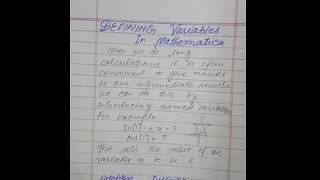 DEFINING Variables
In Mathematica
When we do long
calculations it is often
convenient to give names
to put intermediate results
we can do this by
introducing named variables
For example
In[1] := x = 5
Out[1] = 5
This sets the value of the
variable x to be 5